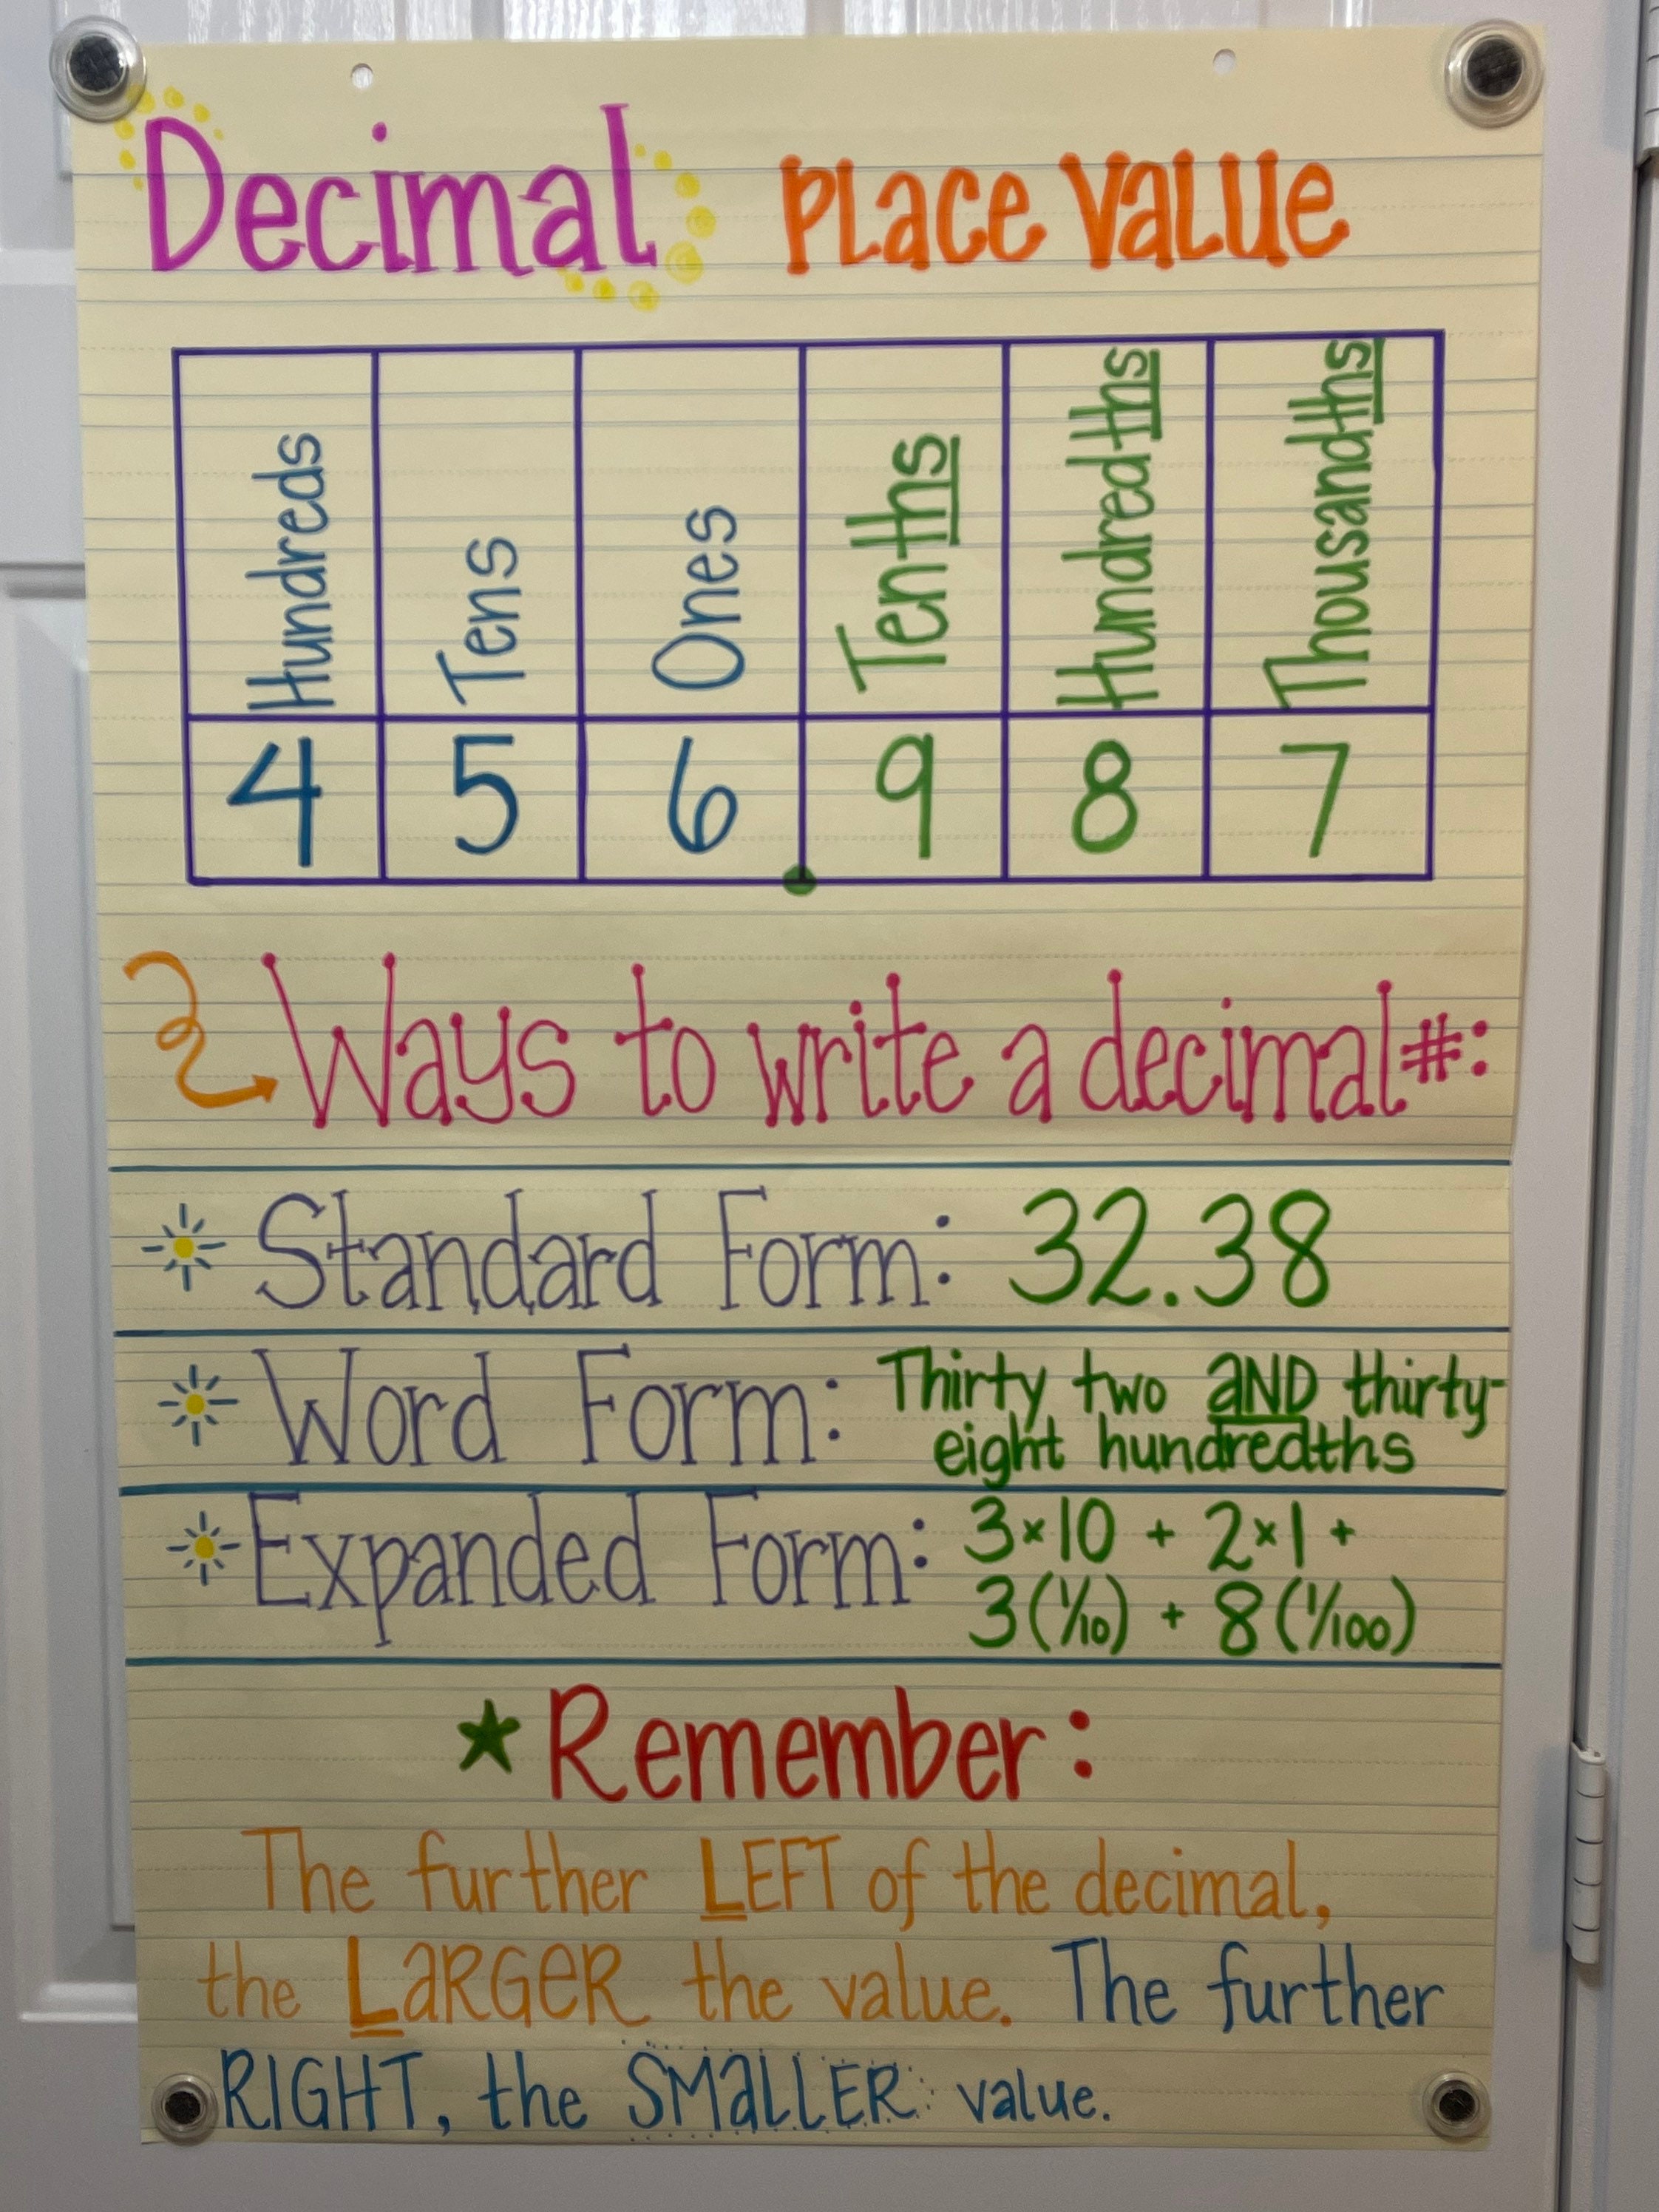 Decimal PLaCe VaLUe
Hundreds Tens Ones Tenths Hundredths Thousandths
4 5 6 . 9 8 7
Ways to write a decimal #:
Standard Form: 32.38
Word Form: Thirty two aND thirty-
eight hundredths
Expanded Form: 3×10 + 2×1 +
3(1/10) + 8(1/100)
★ Remember:
The further LEFT of the decimal,
the LaRGeR the value. The further
RIGHT, the SMaLLER value.